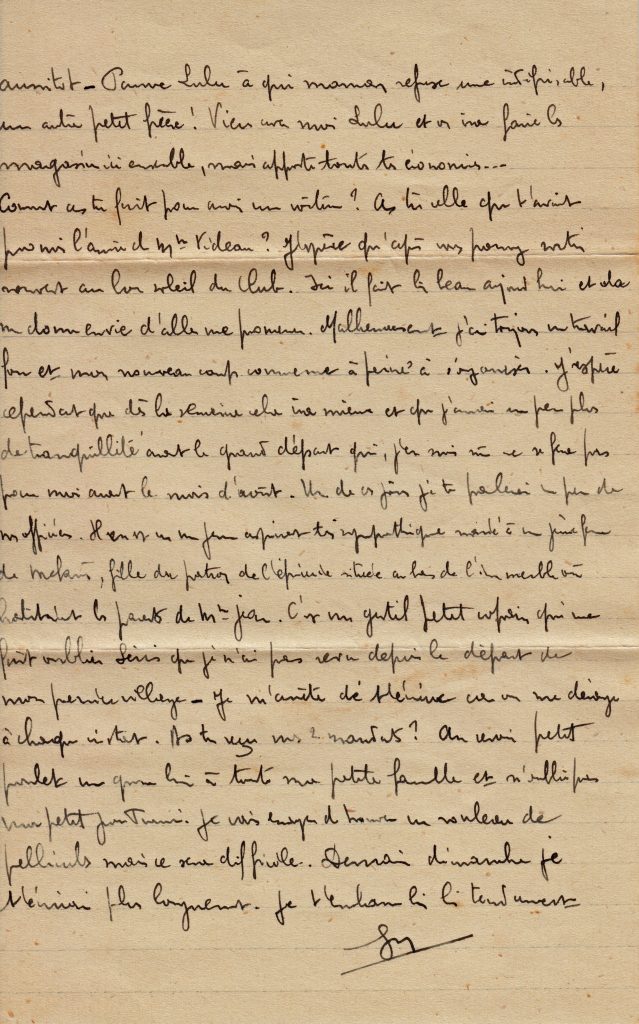 aussitôt - Pauvre Lulu à qui maman refuse une
un autre petit frère ! Viens avec moi Lulu et on ira faire les
magasins ici ensemble, mais apporte toutes tes économies...
Comment as tu fait pour avoir une voiture ? As tu celle que t'avait
promis l'amie de Mme Videau ? J'espère qu'après vous pourrez sortir
souvent au bon soleil du Club. Ici il fait très beau aujourd'hui et cela
me donne envie d'aller me promener. Malheureusement j'ai toujours un travail
fou et mon nouveau camp commence à peine à s'organiser. J'espère
cependant que dès la semaine cela ira mieux et que j'aurai un peu plus
de tranquillité avant le grand départ qui, j'en suis sûr ne se fera pas
pour moi avant le mois d'août. Un de ces jours je te parlerai un peu de
mes officiers. Il y en a un jeune aspirant très sympathique marié à une jeune femme
de, fille du patron de l'épicerie située au bas de l'immeuble où
habitaient les parents de Mme Jean. C'est un gentil petit copain qui me
fait oublier que je n'ai pas revu depuis le départ de
mon premier village - Je m'arrête de t'écrire car on me dérange
à chaque instant. As tu reçu mes 2 mandats ? Au revoir petit
poulet un gros à toute ma petite famille et n'oublie pas
mon petit. Je vais essayer de trouver un rouleau de
pellicules mais ce sera difficile. Demain dimanche je
t'écrirai plus longuement. Je t'embrasse bien bien tendrement